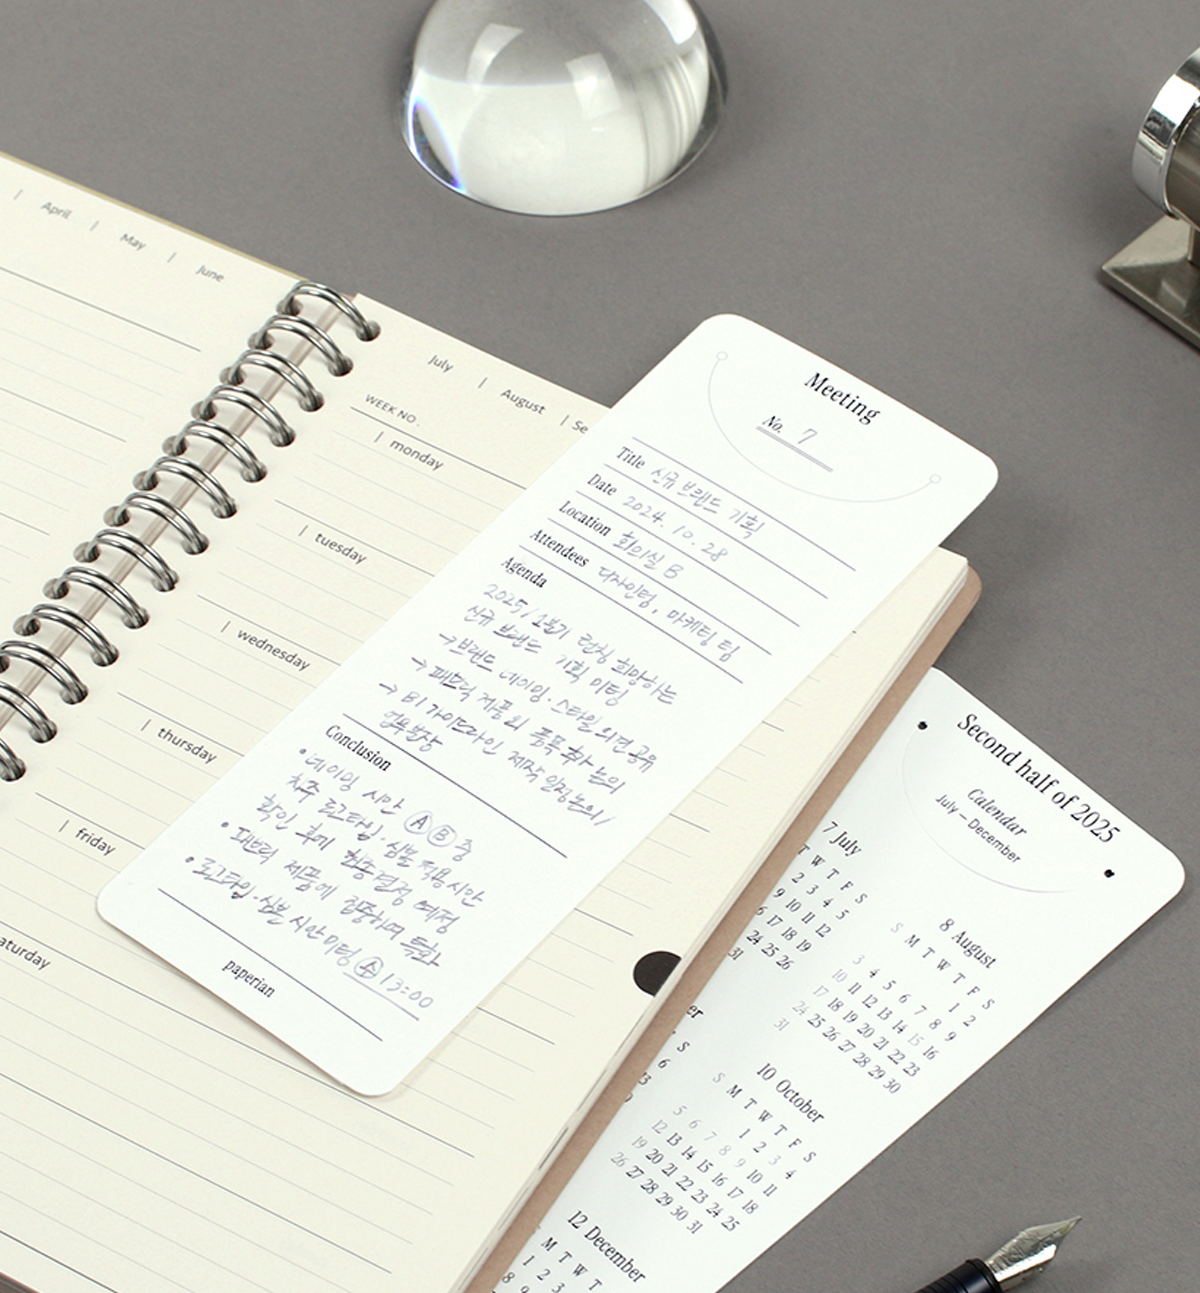 April | May | June
July | August | Se
WEEK NO.
monday
tuesday
wednesday
thursday
friday
aturday
Meeting
No. 7
Title 신규 브랜드 기획
Date 2024. 10. 28
Location 회의실 B
Attendees 디자인팀, 마케팅팀
Agenda
2025/1분기 런칭 희망하는
신규 브랜드 기획 미팅
→ 브랜드 네이밍·스타일 의견 공유
→ 패브릭 제품의 품목 논의
→ BI 가이드라인 제작 일정 논의/
업무분장
Conclusion
• 네이밍 시안 Ⓐ Ⓑ 중
차주 로고타입·심볼 적용 시안
확인 후에 최종 결정 예정
• 패브릭 제품에 집중하여 특화
• 로고타입·심볼 시안 미팅 13:00
paperian
Second half of 2025
Calendar
July – December
7 July
T W T F S
2 3 4 5
9 10 11 12
16 17 18 19
24 25 26
31
8 August
S M T W T F S
1 2
3 4 5 6 7 8 9
10 11 12 13 14 15 16
17 18 19 20 21 22 23
24 25 26 27 28 29 30
31
er
S
6
13
10 October
S M T W T F S
1 2 3 4
5 6 7 8 9 10 11
12 13 14 15 16 17 18
19 20 21 22 23 24 25
26 27 28 29 30 31
12 December
M T W T
1 2 3
8 9